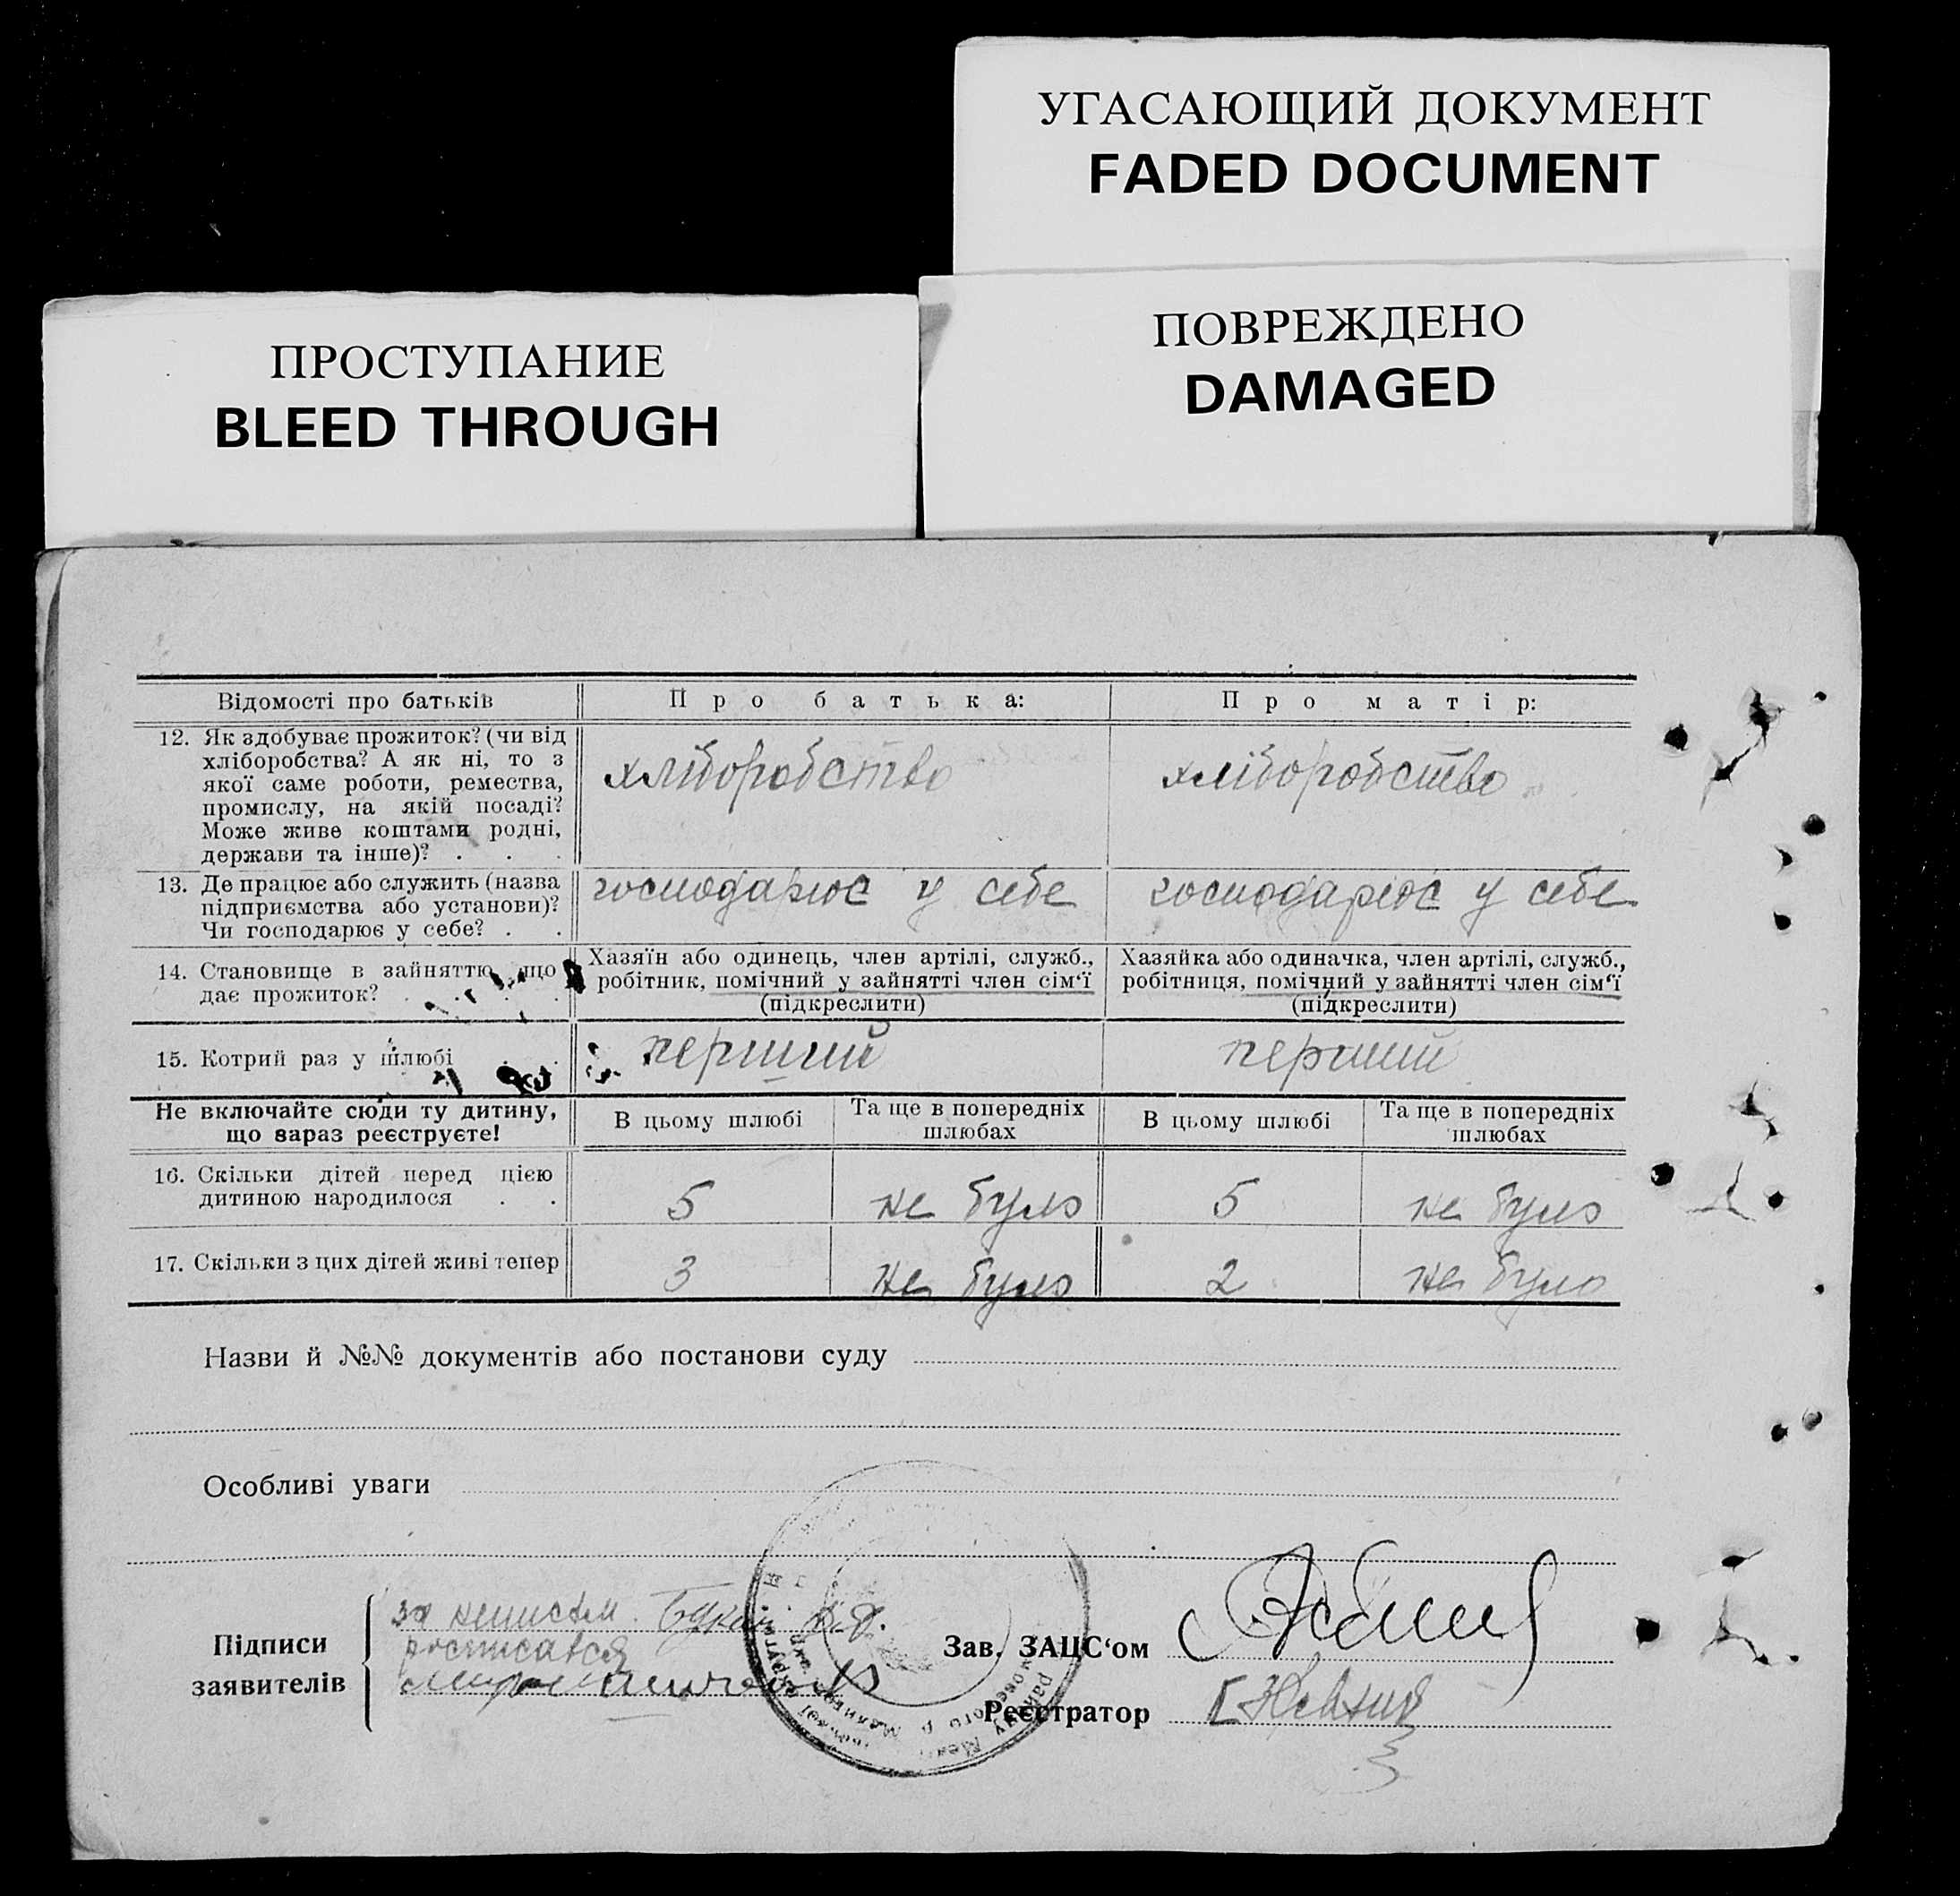 УГАСАЮЩИЙ ДОКУМЕНТ
FADED DOCUMENT
ПРОСТУПАНИЕ
BLEED THROUGH
ПОВРЕЖДЕНО
DAMAGED
Відомості про батьків
Про батька:
Про матір:
12. Як здобуває прожиток? (чи від
хліборобства? А як ні, то з
якої саме роботи, ремества,
промислу, на якій посаді?
Може живе коштами родні,
держави та інше)? . . .
хліборобство
хліборобство
13. Де працює або служить (назва
підприємства або установи)?
Чи господарює у себе? . .
господарює у себе
господарює у себе
14. Становище в зайняттю, що
дає прожиток? . . . .
Хазяїн або одинець, член артілі, служб.,
робітник, помічний у зайнятті член сім‘ї
(підкреслити)
Хазяйка або одиначка, член артілі, служб.,
робітниця, помічний у зайнятті член сім‘ї
(підкреслити)
15. Котрий раз у шлюбі . .
перший
перший
Не включайте сюди ту дитину,
що зараз реєструєте!
В цьому шлюбі
Та ще в попередніх
шлюбах
В цьому шлюбі
Та ще в попередніх
шлюбах
16. Скільки дітей перед цією
дитиною народилося . .
5
не було
5
не було
17. Скільки з цих дітей живі тепер
3
не було
2
не було
Назви й №№ документів або постанови суду
Особливі уваги
Підписи
заявителів
за неписьм.
росписався
Зав. ЗАЦС‘ом
Реєстратор